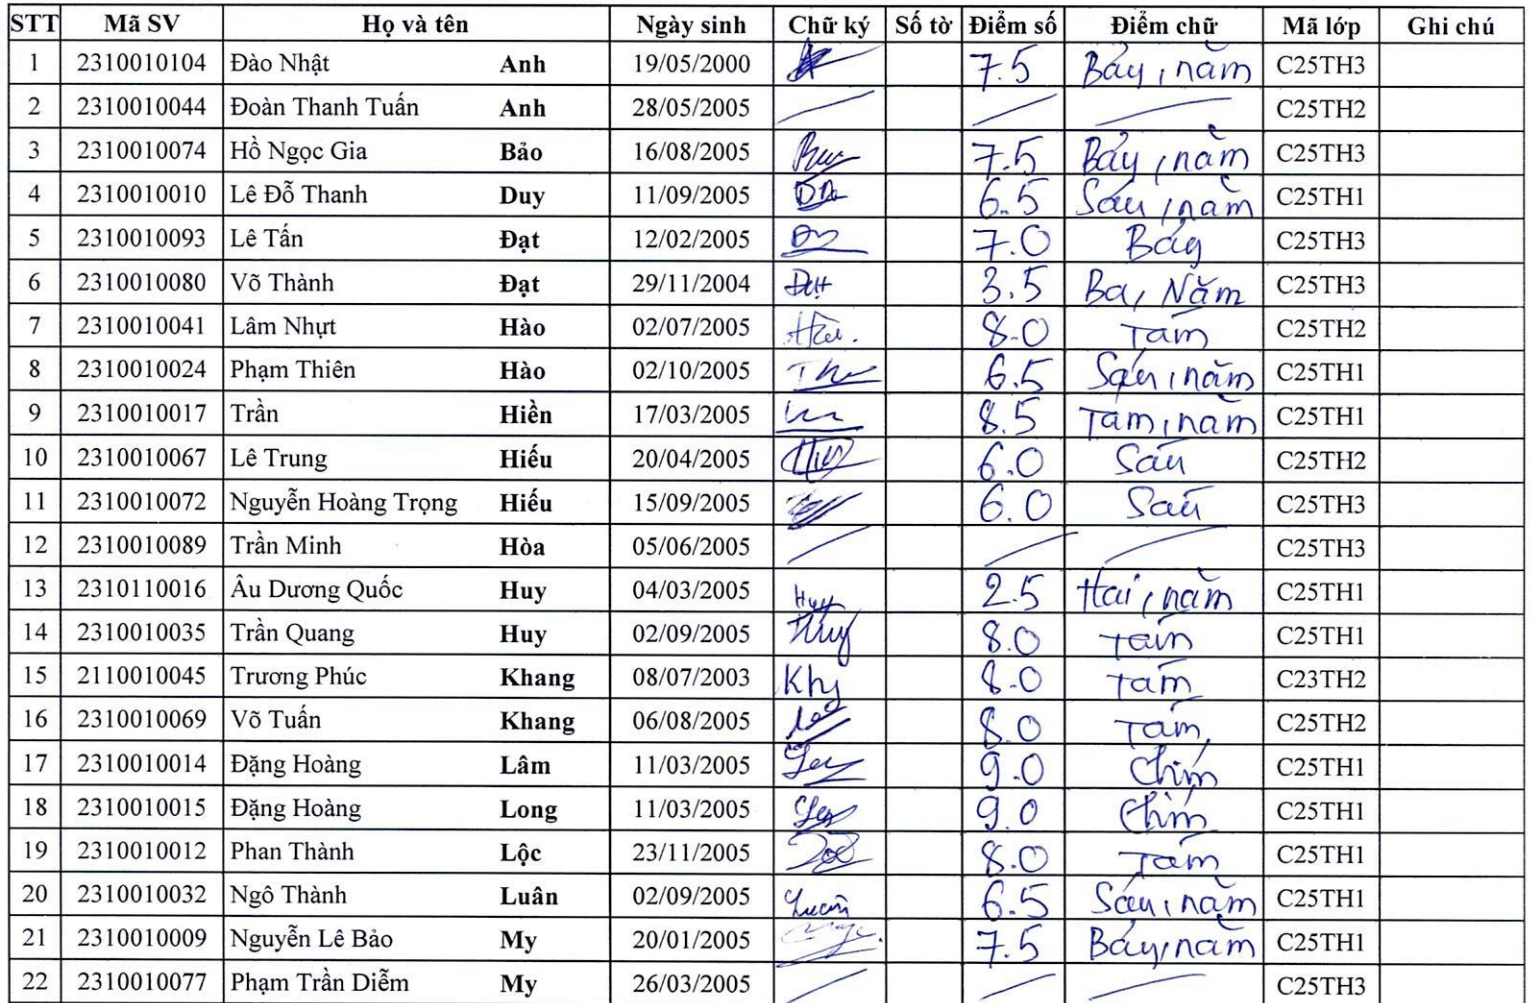 STT Mã SV Họ và tên Ngày sinh Chữ ký Số tờ Điểm số Điểm chữ Mã lớp Ghi chú
1 2310010104 Đào Nhật Anh 19/05/2000 7.5 Bảy, năm C25TH3
2 2310010044 Đoàn Thanh Tuấn Anh 28/05/2005 C25TH2
3 2310010074 Hồ Ngọc Gia Bảo 16/08/2005 7.5 Bảy, năm C25TH3
4 2310010010 Lê Đỗ Thanh Duy 11/09/2005 6.5 Sáu, năm C25TH1
5 2310010093 Lê Tấn Đạt 12/02/2005 7.0 Bảy C25TH3
6 2310010080 Võ Thành Đạt 29/11/2004 Đạt 3.5 Ba, Năm C25TH3
7 2310010041 Lâm Nhựt Hào 02/07/2005 8.0 Tám C25TH2
8 2310010024 Phạm Thiên Hào 02/10/2005 6.5 Sáu, năm C25TH1
9 2310010017 Trần Hiền 17/03/2005 8.5 Tám, năm C25TH1
10 2310010067 Lê Trung Hiếu 20/04/2005 6.0 Sáu C25TH2
11 2310010072 Nguyễn Hoàng Trọng Hiếu 15/09/2005 6.0 Sáu C25TH3
12 2310010089 Trần Minh Hòa 05/06/2005 C25TH3
13 2310110016 Âu Dương Quốc Huy 04/03/2005 Huy 2.5 Hai, năm C25TH1
14 2310010035 Trần Quang Huy 02/09/2005 Huy 8.0 Tám C25TH1
15 2110010045 Trương Phúc Khang 08/07/2003 Khg 8.0 Tám C23TH2
16 2310010069 Võ Tuấn Khang 06/08/2005 8.0 Tám C25TH2
17 2310010014 Đặng Hoàng Lâm 11/03/2005 9.0 Chín C25TH1
18 2310010015 Đặng Hoàng Long 11/03/2005 9.0 Chín C25TH1
19 2310010012 Phan Thành Lộc 23/11/2005 8.0 Tám C25TH1
20 2310010032 Ngô Thành Luân 02/09/2005 Luân 6.5 Sáu, năm C25TH1
21 2310010009 Nguyễn Lê Bảo My 20/01/2005 7.5 Bảy, năm C25TH1
22 2310010077 Phạm Trần Diễm My 26/03/2005 C25TH3